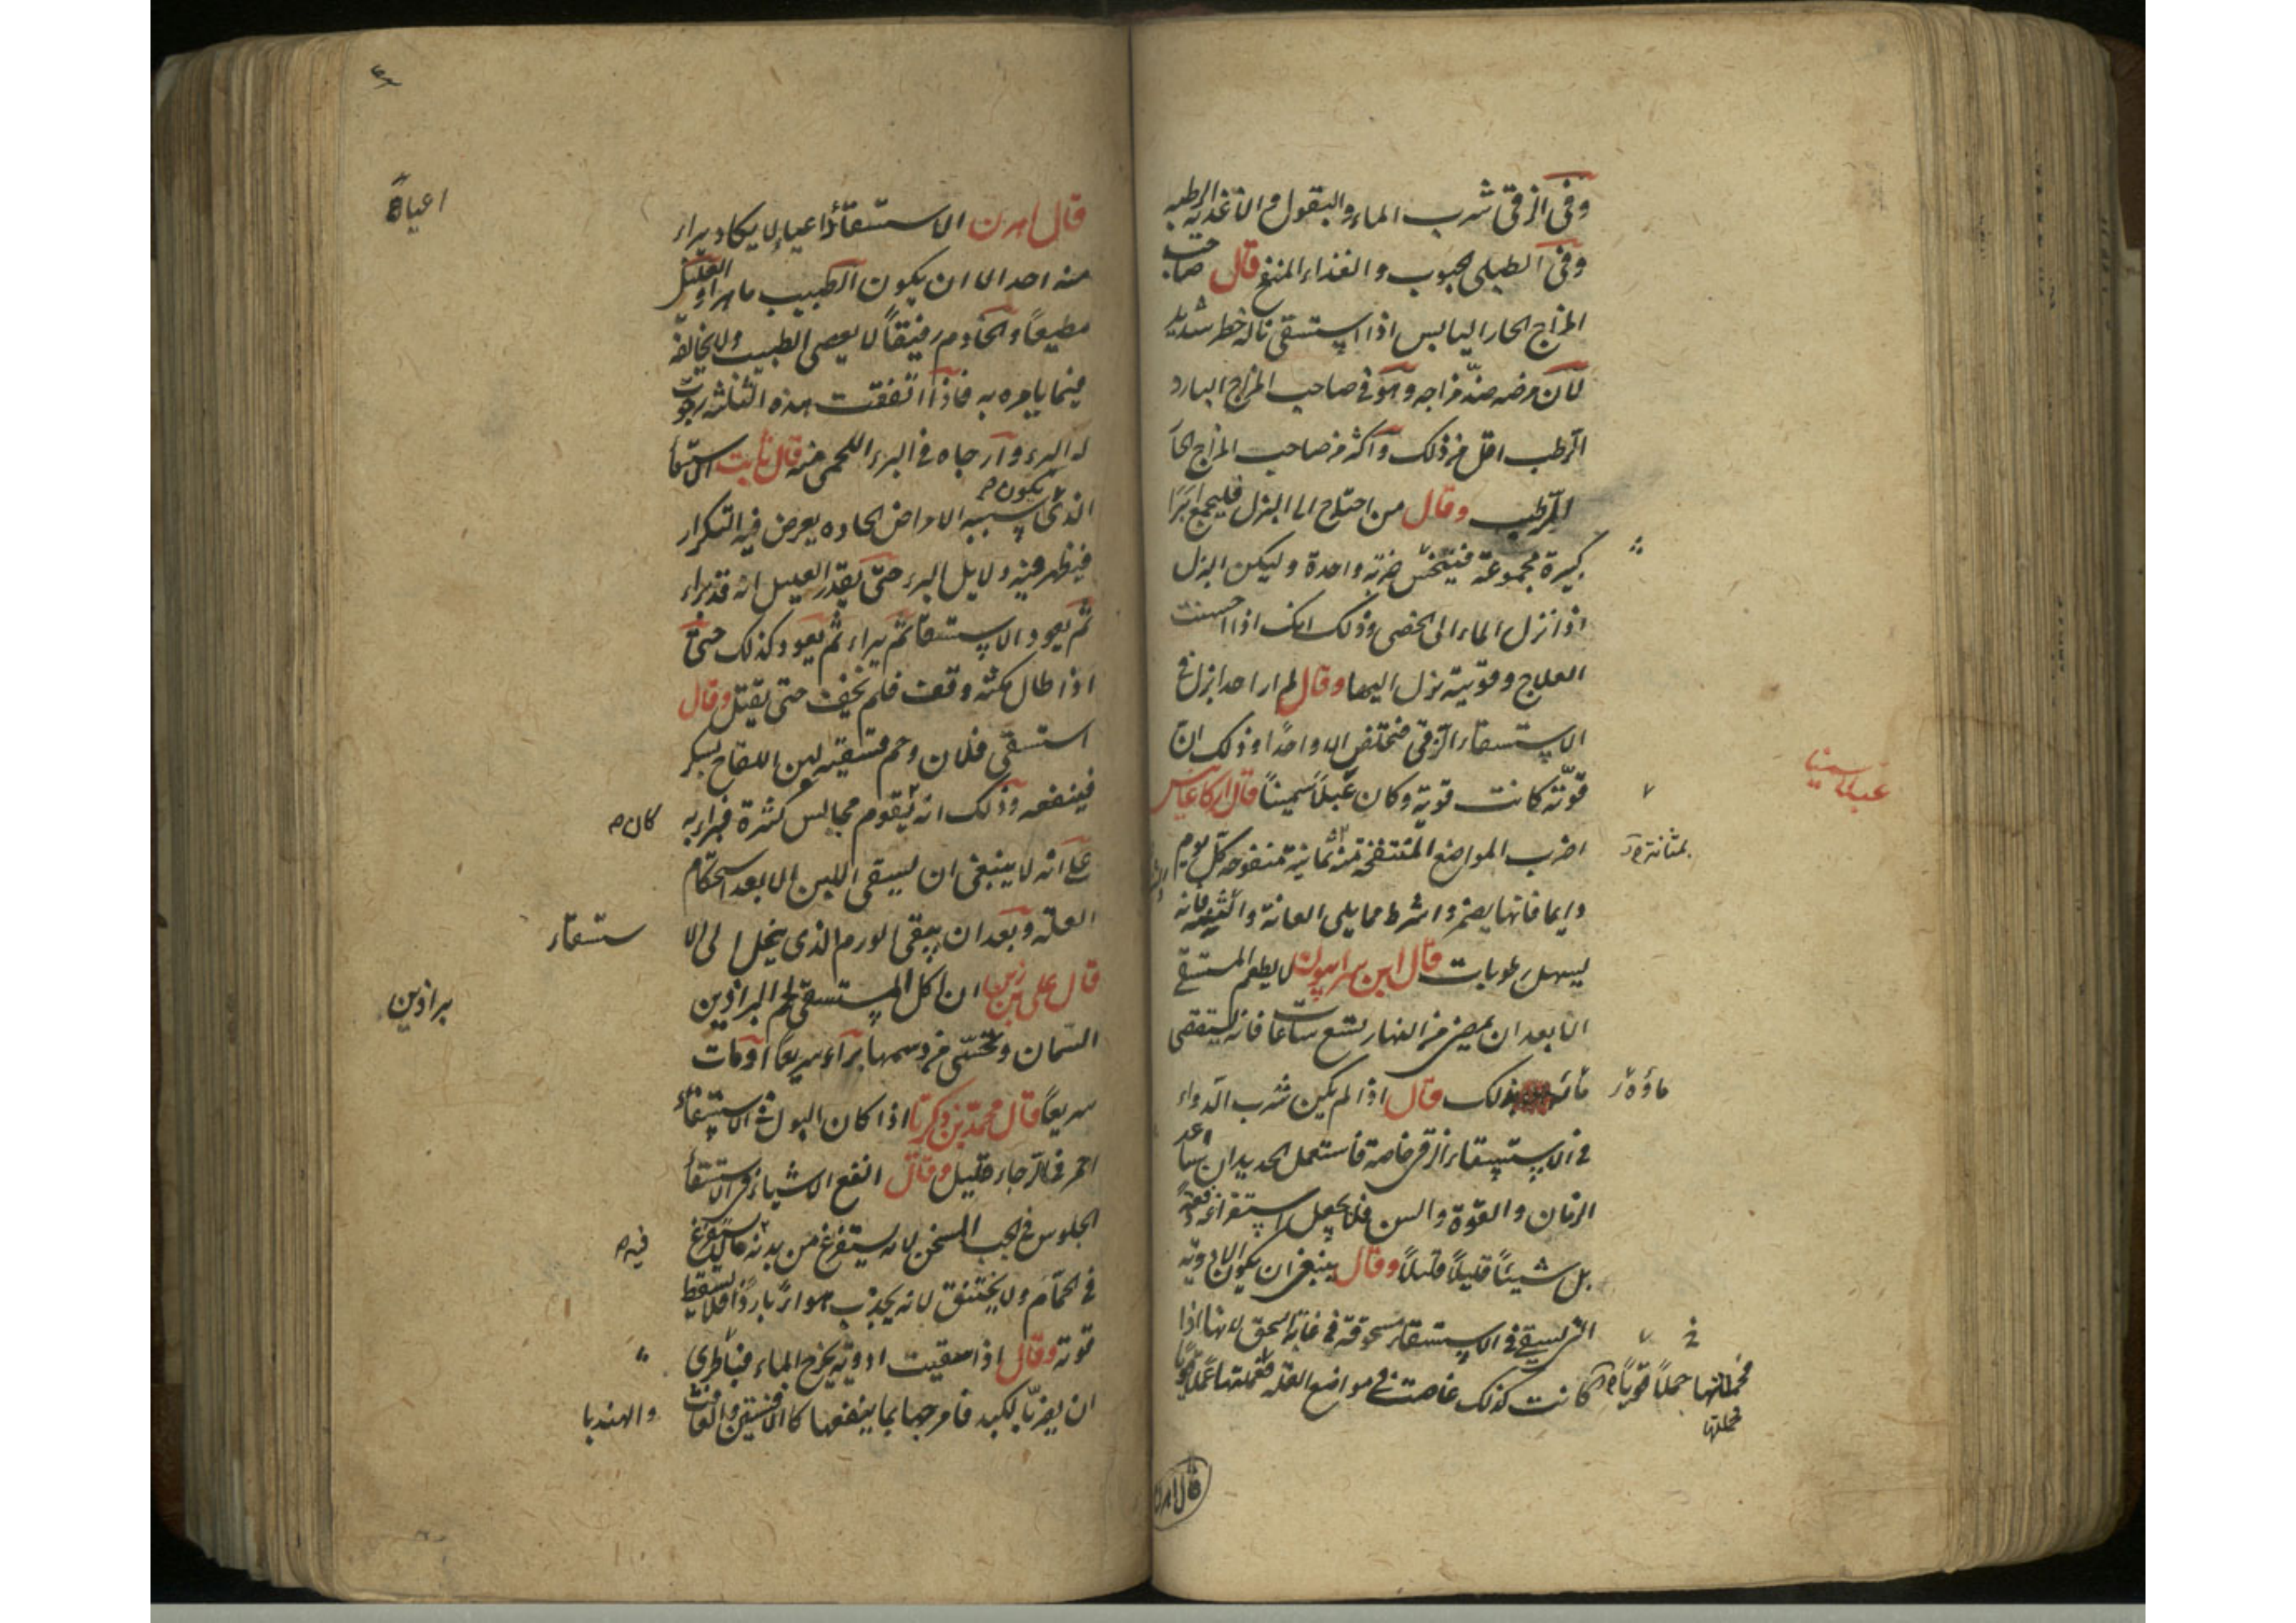 وفى الزقى شرب الماء والبقول والأغذية الرطبه
وفى الطبلى الحبوب والغذاء المنفخ قال صاحب
المزاج الحار اليابس اذا استسقى ناله خطر شديد
لأن مرضه ضد مزاجه وهو فى صاحب المزاج البارد
الرطب اقل من ذلك وأكثر من صاحب المزاج الحا
الرطب وقال من احتاج الى البزل فليجمع ابرا
كبيرة مجموعة فينخس ضربة واحدة وليكن البزل
اذا نزل الماء الى الخصى وذلك انك اذا احسنت
العلاج وقويته نزل اليها وقال لم ار احدا بزل فى
الاستسقاء الزقى فتخلص الا واحدا وذلك ان
قوته كانت قوية وكان عبلا سمينا قال اركاغانيس
عبلا سمينا
اضرب المواضع المنتفخة منه بمثانة منفوخة كل يوم
بمثانة
دايما فانها يضمر واشرط مما يلى العانة فانه
يسهل رطوبات قال ابن سرابيون لا يطعم المستسقى
الا بعد ان يمضى من النهار تسع ساعات فانه يستقصى
ماؤه بذلك قال اذا لم يكن شرب الدواء
ماؤه
فى الاستسقاء الزقى خاصة فاستعمل الحديد ان ساعد
الزمان والقوة والسن فلا يجعل استفراغه دفعة
بل شيئا قليلا قليلا وقال ينبغى ان يكون الادوية
التى يسقى فى الاستسقاء مسحوقة فى غاية السحق لانها اذا
كانت كذلك غاصت فى مواضع العلة
حملا قويا
قال اهرن
قال اهرن الاستسقاء داء عياء لا يكاد يبراء
اعياء
منه احد الا ان يكون الطبيب ماهرا والعليل
مطيعا والخادم رفيقا لا يعصى الطبيب ولا يخالفه
فيما يامره به فاذا اتفقت هذه الثلثة رجوت
له البرء وارجاه فى البرء اللحمى منه قال ثابت الاستسقا
الذى يكون سببه الامراض الحاده يعرض فيه التكرار
فيظهر فيه دلايل البرء حتى يقدر العليل انه قد براء
ثم يعود الاستسقا ثم يبراء ثم يعود كذلك حتى
اذا طال مكثه وقف فلم يخف حتى يقتل وقال
استسقى فلان وحم فسقيته لبن اللقاح بسكر
فينفعه وذلك انه يقوم مجالس كثيرة فبراء به
كان
على انه لا ينبغى ان يسقى اللبن الا بعد استحكام
العلة وبعد ان يبقى الورم الذى ينحل الى الا
ستسقاء
قال على بن زين ان اكل المستسقى لحم البراذين
براذين
السمان وتحسى من دسمها براء سريعا او مات
سريعا قال محمد بن زكريا اذا كان البول فى الاستسقاء
احمر فالرجاء قليل وقال انفع الاشياء فى الاستسقا
الجلوس فى الجب المسخن لانه يستفرغ من بدنه ما يستفرغ
فيه
فى الحمام ولا يختنق لانه يجذب هواء باردا فلا يسقط
قوته وقال اذا سقيت ادوية يخرج الماء فبالحرى
ان يضر بالكبد فامزجها بما ينفعها كالافسنتين والغافت
والهندبا